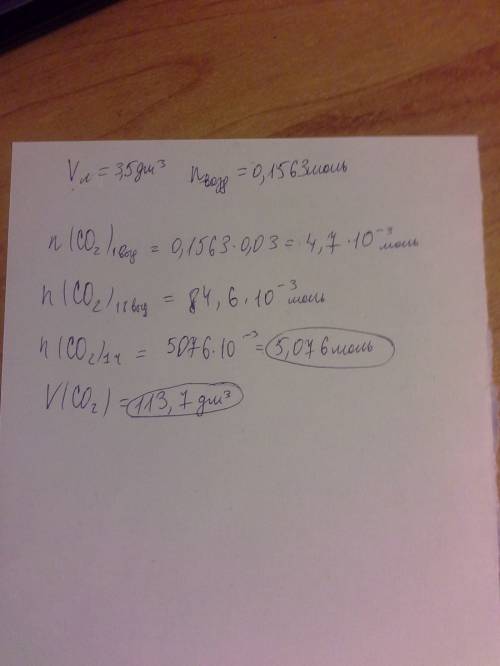 Vл = 3,5дм³ nвозд = 0,1563моль
n(CO₂)₁вод = 0,1563·0,03 = 4,7·10⁻³моль
n(CO₂)₁₈вод = 84,6·10⁻³моль
n(CO₂)₁ч = 5076·10⁻³ = 5,076моль
V(CO₂) = 113,7дм³